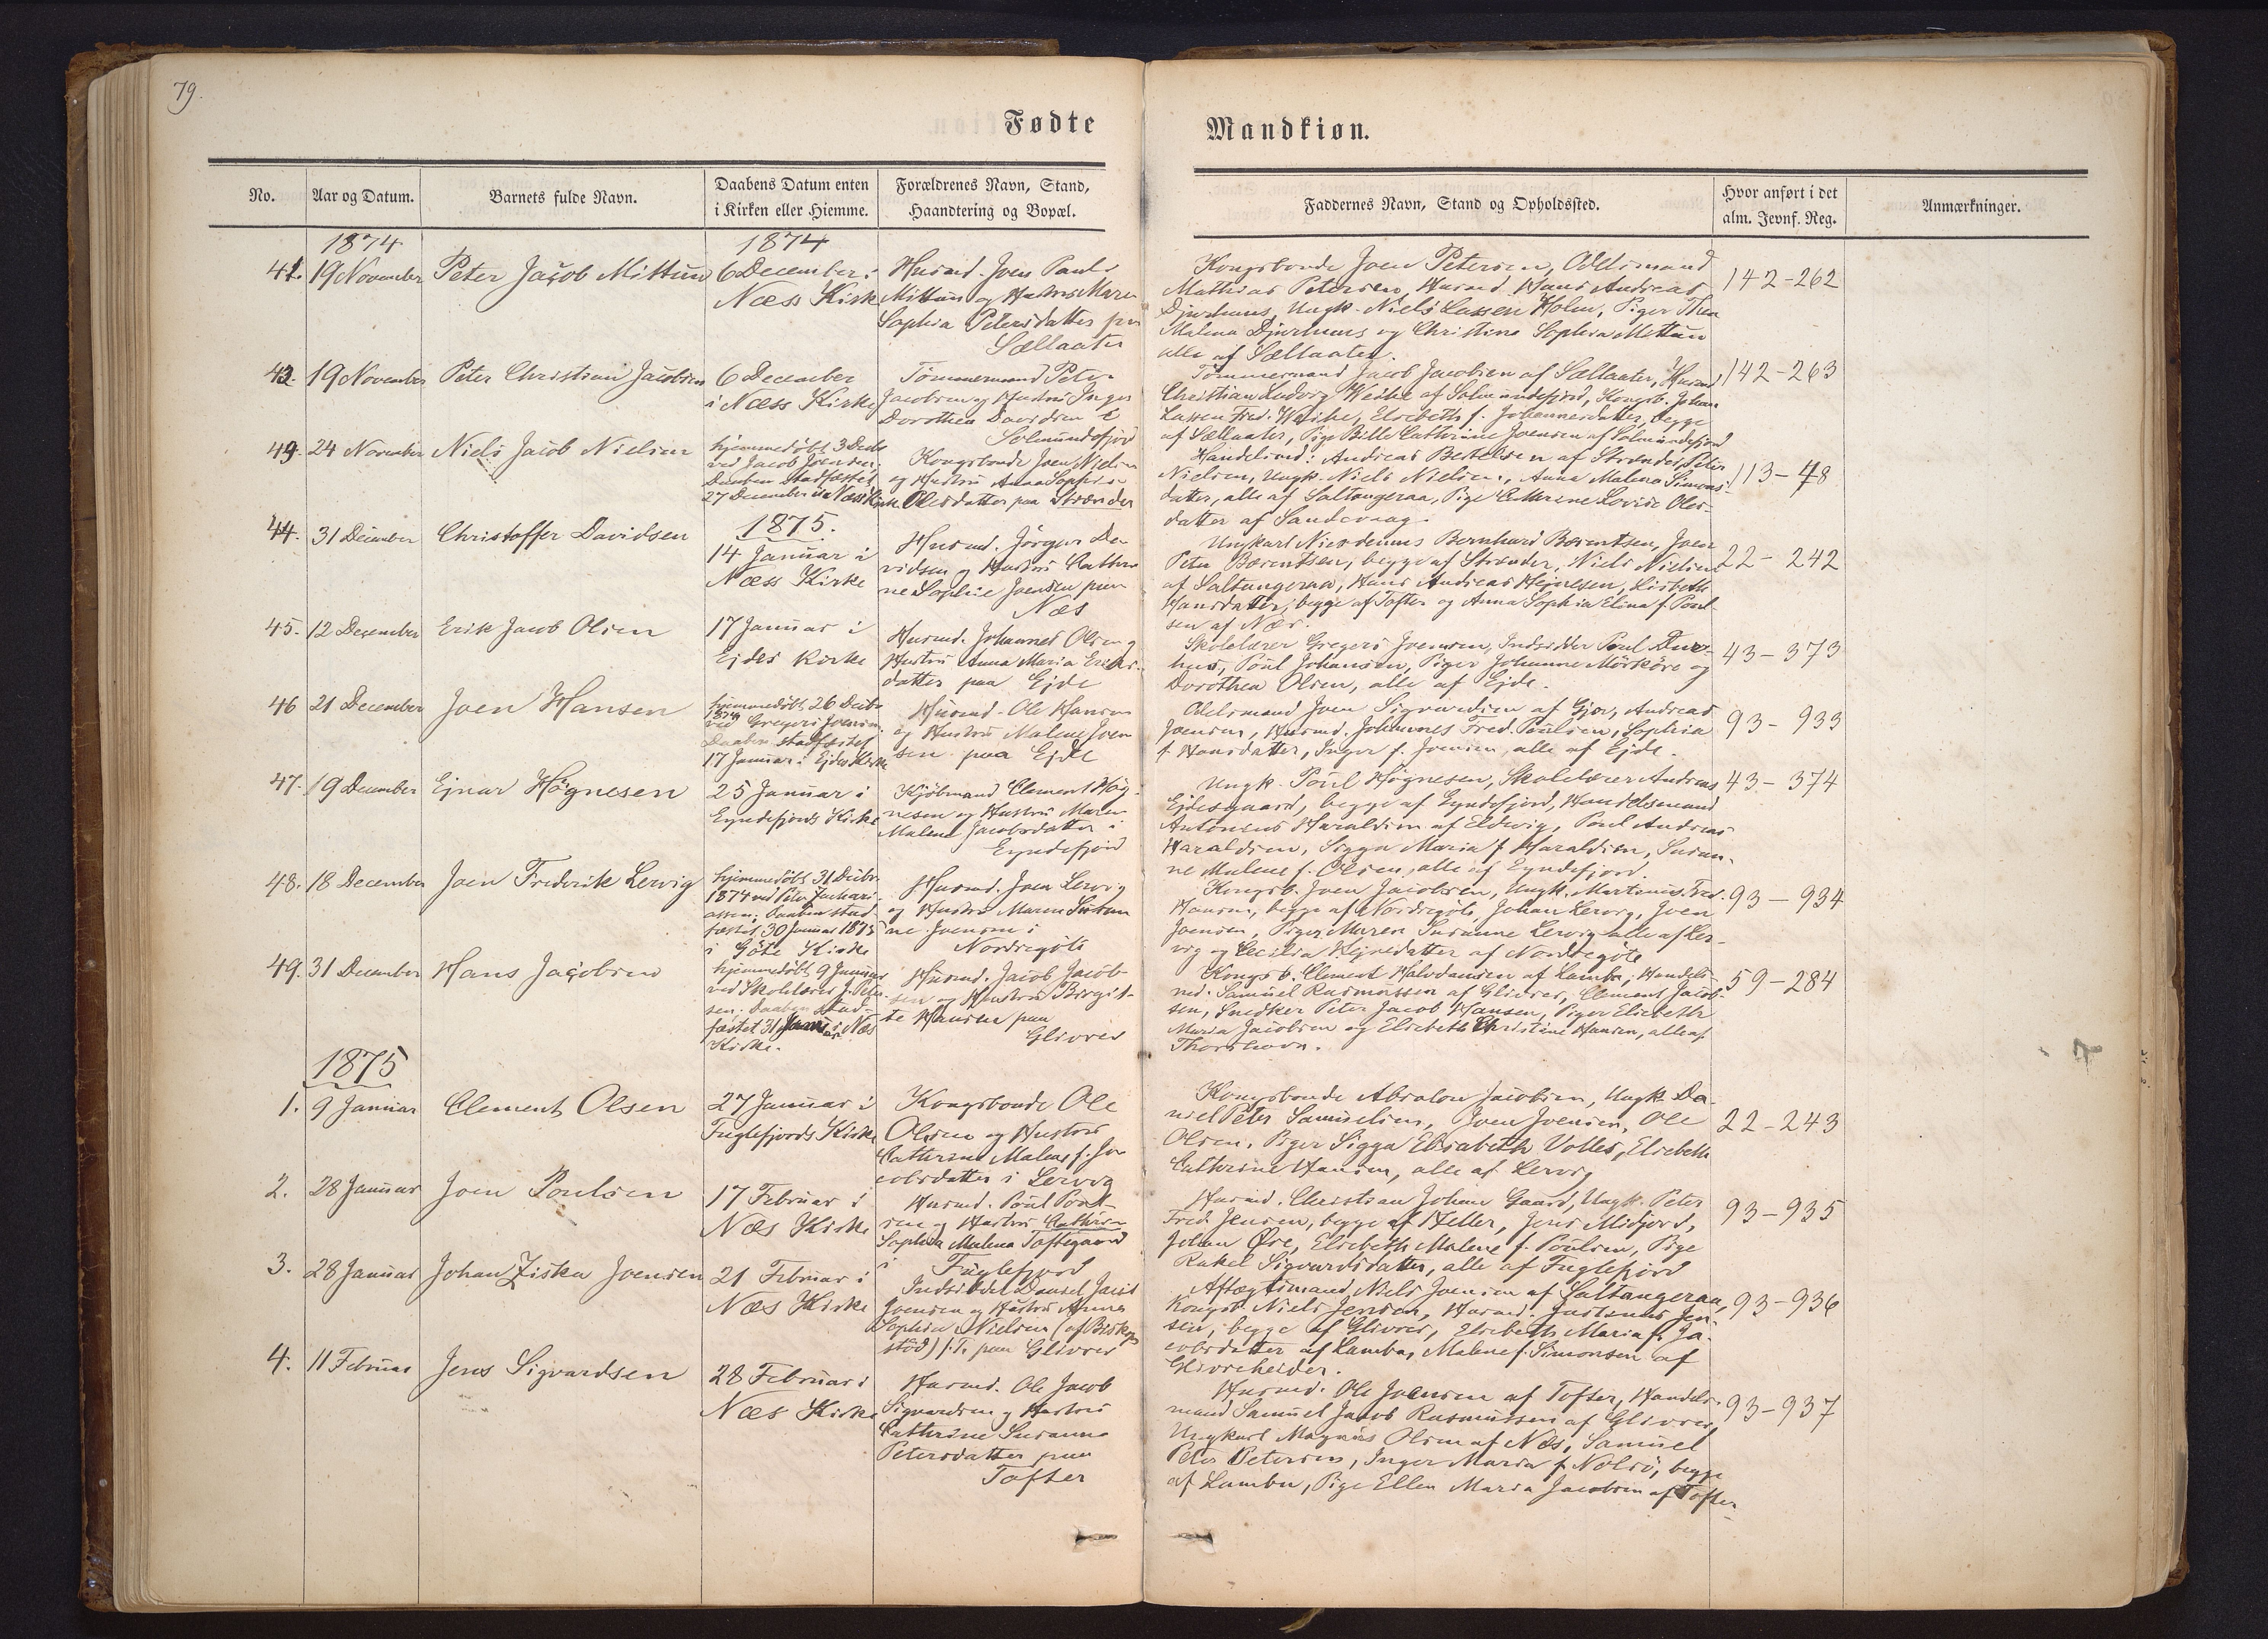 79.
Fødte
Mandkiøn.
No.
Aar og Datum.
Barnets fulde Navn.
Daabens Datum enten
i Kirken eller Hiemme.
Forældrenes Navn, Stand,
Haandtering og Bopæl.
Faddernes Navn, Stand og Opholdssted.
Hvor anført i det
alm. Jevnf. Reg.
Anmærkninger.
1874
1874
41. 19 November Peter Jacob Mittun
6 December i
Næss Kirk
Husmd. Joen Pauls
Mittun og Hustru Maren
Sophia Petersdatter paa
Sællaater
Kongsbonde Joen Petersen, Odelsmand
Mathias Petersen, Husmd. Hans Andreas
Djurhuus, Ungk. Niels Lassen Holm, Piger Thea
Malena Djurhuus og Christina Sophia Mittun
alle af Sællaater.
142-262
42. 19 November Peter Christian Jacobsen
6 December
i Næss Kirke
Tømmermand Peter
Jacobsen og Hustru Inger
Dorothea Davidsen i
Solmundefjord
Tømmermand Jacob Jacobsen af Sællaater, Husmd
Christian Ludvig Weihe af Solmundefjord, Kongsb. Johan
Lassen Fred. Weihe, Elsebeth f. Johannesdatter, begge
af Sællaater, Pige Bille Cathrine Joensen af Solmundefjord
142-263
43. 24 November Niels Jacob Nielsen
hjemmedøbt 3 Decbr
ved Jacob Joensen;
Daaben stadfæstet
27 December i Næss Kirke
Kongsbonde Joen Nielsen
og Hustru Anna Sophia
Olesdatter paa Strænder
Handelsmd: Andreas Bertelsen af Strænder, Peter
Nielsen, Ungk. Niels Nielsen, Anna Malena Simons-
datter, alle af Saltangeraa, Pige Cathrine Lovise Oles-
datter af Sandevaag.
113-48
44. 31 December Christoffer Davidsen
1875.
14 Januar i
Næss Kirke
Husmd. Jörgen Da-
vidsen og Hustru Cathri-
ne Sophie Joensen paa
Næs
Ungkarl Nicodemus Bernhard Bærentsen, Joen
Peter Bærentsen, begge af Strænder, Niels Nielsen
af Saltangeraa, Hans Andreas Hejnesen, Lisbeth
Hansdatter, begge af Tofter og Anna Sophia Elina f. Poul-
sen af Næs.
22-242
45. 12 December Erik Jacob Olsen
17 Januar i
Ejdes Kirke
Husmd. Johannes Olsen og
Hustru Anna Maria Eriks-
datter paa Ejde
Skolelærer Gregers Joensen, Indsidder Poul Dur-
hus, Poul Johansen, Piger Johanne Mörköre og
Dorothea Olsen, alle af Ejde.
43-373
46 21 December Joen Hansen
hjemmedöbt 26 Decbr
1874
ved Gregers Joensen
Daaben stadfæstet
17 Januar i Ejdes Kirke
Husmd. Ole Hansen
og Hustru Malene Joen
sen paa Ejde
Odelsmand Joen Sigvardsen af Gjov, Andreas
Joensen, Husmd. Johannes Fred. Poulsen, Sophia
f. Hansdatter, Inger f. Joensen, alle af Ejde.
93-933
47. 19 December Ejnar Högnesen
25 Januar i
Eyndefjords Kirke
Kjöbmand Clement Hög-
nesen og Hustru Maren
Malene Jacobsdatter i
Eyndefjord
Ungk. Poul Högnesen, Skolelærer Andreas
Ejdesgaard, begge af Eyndefjord, Handelsmand
Antonius Haraldsen af Eldevig, Poul Andreas
Haraldsen, Sigga Maria f. Haraldsen, Susan-
ne Malene f. Olsen, alle af Eyndefjord.
43-374
48. 18 December Joen Frederik Lervig
hjemmedöbt 31 Decbr.
1874 ved Peter Zachari-
assen; Daaben stad-
fæstet 30 Januar 1875
i Göte Kirke
Husmd. Joen Lervig
og Hustru Maren Susan
ne Joensen i
Nordregöte
Kongsb. Joen Jacobsen, Ungk. Martinus Fred.
Hansen, begge af Nordregöte, Johan Lervig, Joen
Joensen, Piger Maren Susanne Lervig alle af Ler-
vig og Cecilia Hejnedatter af Nordregöte
93-934
49. 31 December Hans Jacobsen
hjemmedöbt 9 Januar
ved Skolelærer J. Peter-
sen; Daaben stad-
fæstet 31 Januar i Næs
Kirke.
Husmd. Jacob Jacob-
sen og Hustru Birgit-
te Hansen paa
Glivrer
Kongsb. Clement Halvdansen af Lamba, Handels-
md. Samuel Rasmussen af Glivrer, Clement Jacob-
sen, Snedker Peter Jacob Hansen, Piger Elsebeth
Maria Jacobsen og Elsebeth Christine Hansen, alle af
Thorshavn.
59-284
1875
1. 9 Januar Clement Olsen
27 Januar i
Fuglefjords Kirke
Kongsbonde Ole
Olsen og Hustru
Cathrine Malene f. Ja-
cobsdatter i Lervig
Kongsbonde Absalon Jacobsen, Ungk. Da-
niel Peter Samuelsen, Joen Joensen, Ole
Olsen, Piger Sigga Elsabeth Volles, Elsebeth
Cathrine Hansen, alle af Lervig
22-243
2. 28 Januar Joen Poulsen
17 Februar i
Næs Kirke
Husmd. Poul Poul-
sen og Hustru Cathrine
Sophia Malena Toftegaard
i Fuglefjord
Husmd. Christian Johan Gaard, Ungk. Peter
Fred. Jensen, begge af Heller, Jens Midjord,
Johan Öre, Elsebeth Malene f. Poulsen, Pige
Rakel Sigvardsdatter, alle af Fuglefjord
93-935
3. 28 Januar Johan Ziska Joensen
21 Februar i
Næs Kirke
Indsidder Daniel Jacob
Joensen og Hustru Anna
Sophia Nielsen (af Biskops
stöd) p. T. paa Glivrer
Aftægtsmand Niels Joensen af Saltangeraa,
Kongsb. Niels Jensen, Husmd. Justinus Jen-
sen, begge af Glivrer, Elsebeth Maria f. Ja-
cobsdatter af Lamba, Malene f. Simonsen af
Glivreheider.
93-936
4. 11 Februar Jens Sigvardsen
28 Februar i
Næs Kirke
Husmd. Ole Jacob
Sigvardsen og Hustru
Cathrine Susanna
Petersdatter paa
Tofter
Husmd. Ole Joensen af Tofter, Handels-
mand Samuel Jacob Rasmussen af Glivrer,
Ungkarl Magnus Olsen af Næs, Samuel
Peter Petersen, Inger Maria f. Nolsö, begge
af Lamba, Pige Ellen Maria Jacobsen af Tofter
93-937